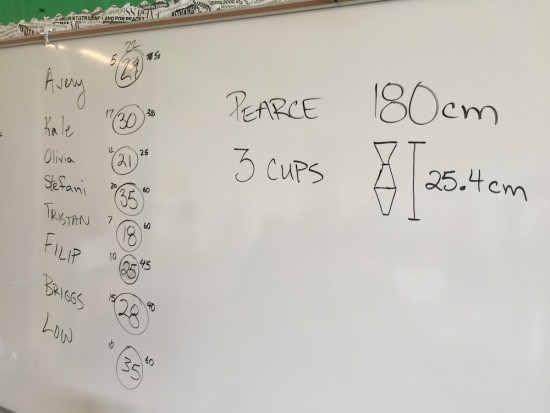 22
Avery 5 29 50
Kale 17 30 38
Olivia 12 21 25
Stefani 20 35 60
TRISTAN 7 18 60
FILIP 10 25 45
BRIGGS 15 28 40
LOW 10 35 60
PEARCE 180cm
3 CUPS 25.4cm